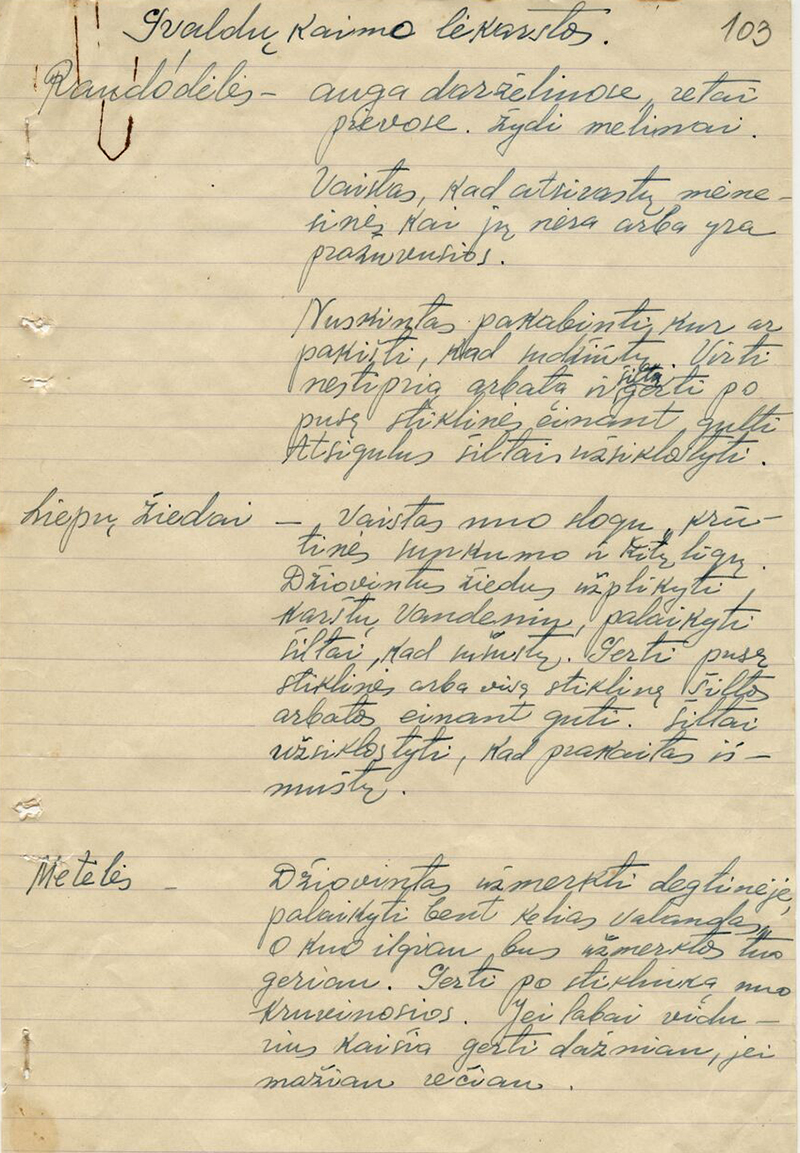 Gvaldų kaimo lėkarstos.
103
Raudodėlės - auga darželiuose, retai
pievose. Žydi melinai.
Vaistas, kad atsirastų mėne-
sinės kai jų nėra arba yra
pražuvusios.
Nuskintas pakabinti kur ar
pakišti, kad sudžiūtų. Virti
nestiprią arbatą ir šiltą gerti po
pusę stiklinės einant gulti
Atsigulus šiltai užsiklostyti.
Liepų žiedai - Vaistas nuo slogų, krū-
tinės sunkumo ir kitų ligų.
Džiovintus žiedus užplikyti,
karštų vandeniu, palaikyti
šiltai, kad sušustų. Gerti pusę
stiklinės arba visą stiklinę šiltos
arbatos einant guti. Šiltai
užsiklostyti, kad prakaitas iš-
muštų.
Metėlės - Džiovintas užmerkti degtinėje,
palaikyti bent kelias valandas,
o kuo ilgiau bus užmerktos tuo
geriau. Gerti po stikliuką nuo
kruvinosios. Jei labai vidu-
rius kaišia gerti dažniau, jei
mažiau rečiau.